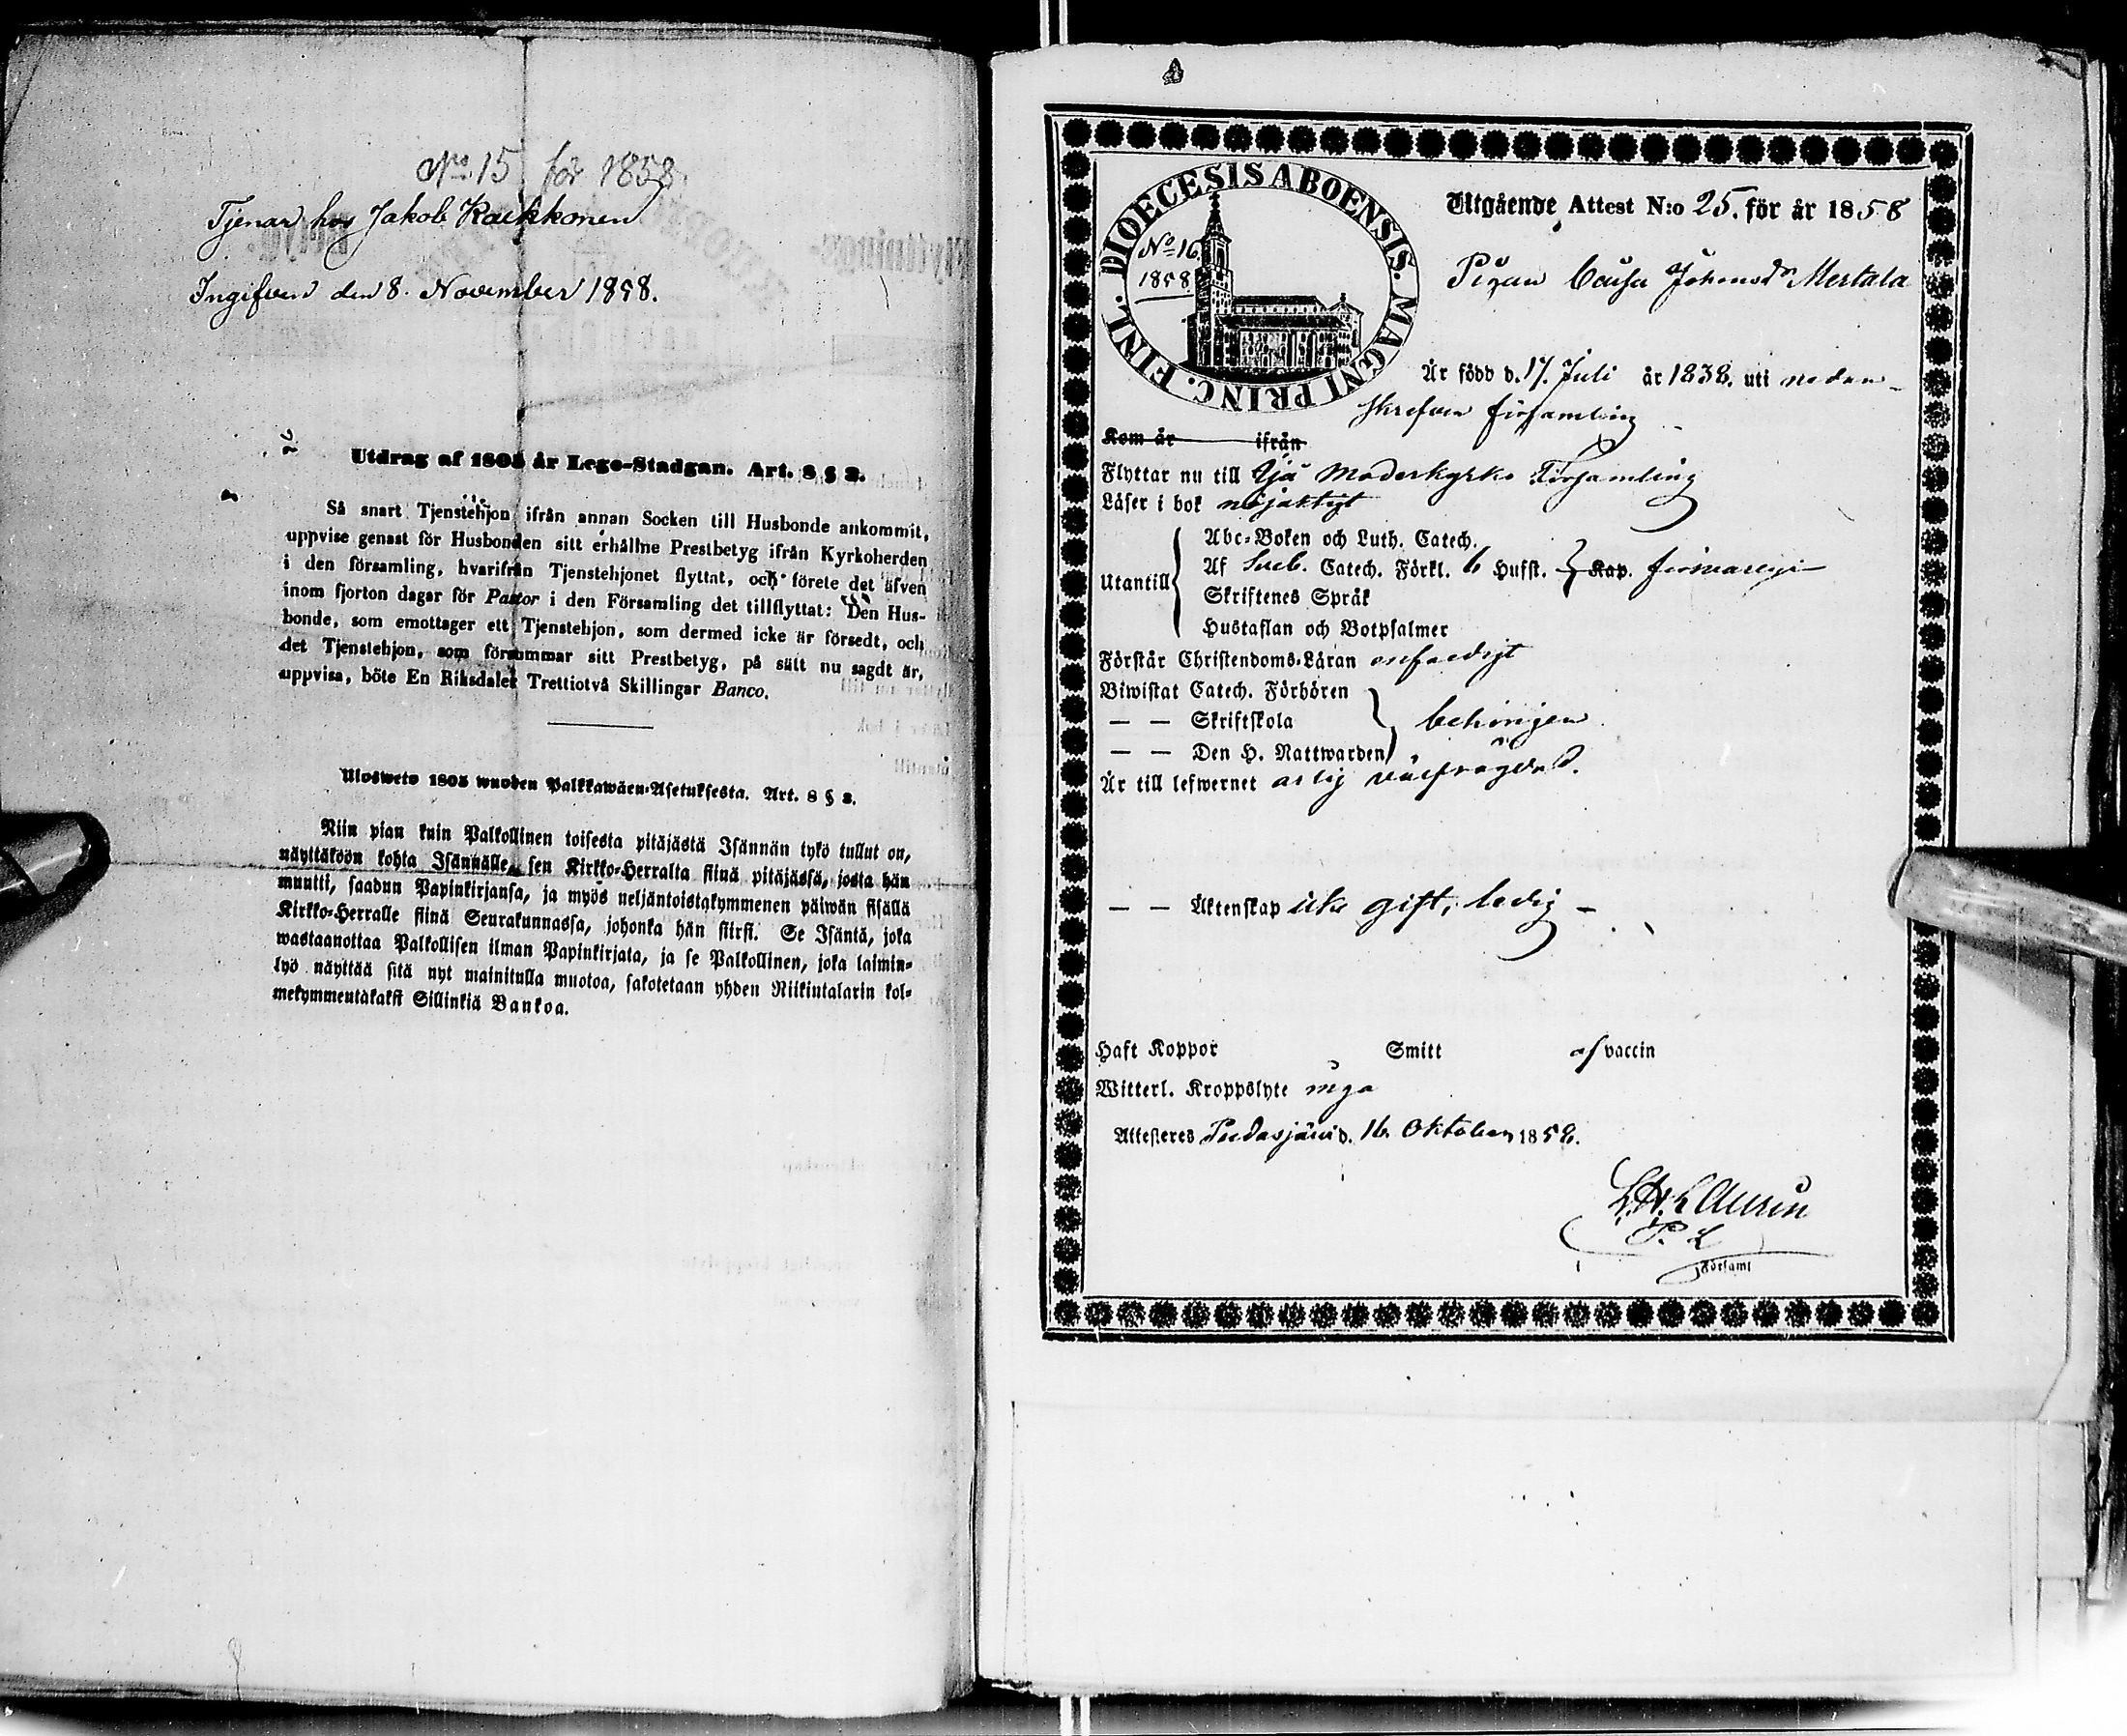 No. 15 för 1858
Tjenar hos Jakob Kaikkonen
Ingifven den 8. November 1858.
Utdrag af 1805 år Lego-Stadgan. Art. 8 § 2.
Så snart Tjenstehjon ifrån annan Socken till Husbonde ankommit,
uppvise genast för Husbonden sitt erhållne Prestbetyg ifrån Kyrkoherden
i den församling, hvarifrån Tjenstehjonet flyttat, och förete det äfven
inom fjorton dagar för Pastor i den Församling det tillflyttat: Den Hus-
bonde, som emottager ett Tjenstehjon, som dermed icke är försedt, och
det Tjenstehjon, som försummar sitt Prestbetyg, på sätt nu sagdt är,
uppvisa, böte En Riksdaler Trettiotvå Skillingar Banco.
Ulosweto 1805 wuoden Palkkawäen-Asetuksesta. Art. 8 § 2.
Niin pian kuin Palkollinen toisesta pitäjästä Isännän tykö tullut on,
näyttäköön kohta Isännälle, sen Kirkko-Herralta siinä pitäjässä, josta hän
muutti, saadun Papinkirjansa, ja myös neljäntoistakymmenen päiwän sisällä
Kirkko-Herralle siinä Seurakunnassa, johonka hän siirsi. Se Isäntä, joka
wastaanottaa Palkollisen ilman Papinkirjata, ja se Palkollinen, joka laimin-
lyö näyttää sitä nyt mainitulla muotoa, sakotetaan yhden Riikintalarin kol-
mekymmentäkaksi Sillinkiä Bankoa.
DIOECESIS ABOENSIS. MAGNI PRINC. FINL.
No 16
1858
Utgående Attest N:o 25. för år 1858
Pigan Caisa Johansdr Mertala
Är född d. 17. Juli år 1838. uti nedan-
skrefven församling
Kom år ifrån
Flyttar nu till Ijå Moderkyrko Församling
Läser i bok nöjaktigt
Utantill
Abc-Boken och Luth. Catech.
Af Sveb. Catech. Förkl. 6 Hufst. Kap.
Skriftenes Språk
Hustaflan och Botpsalmer
Förstår Christendoms-Läran enfaldigt
Biwistat Catech. Förhören
— — Skriftskola behörigen
— — Den H. Nattwarden
Är till lefwernet ärlig välfrägdad.
— — Äktenskap icke gift, ledig -
Haft Koppor Smitt af vaccin
Witterl. Kroppslyte inga
Attesteres Pudasjärvi d. 16. Oktober 1858.
L. H. Laurin
P. L
i församl